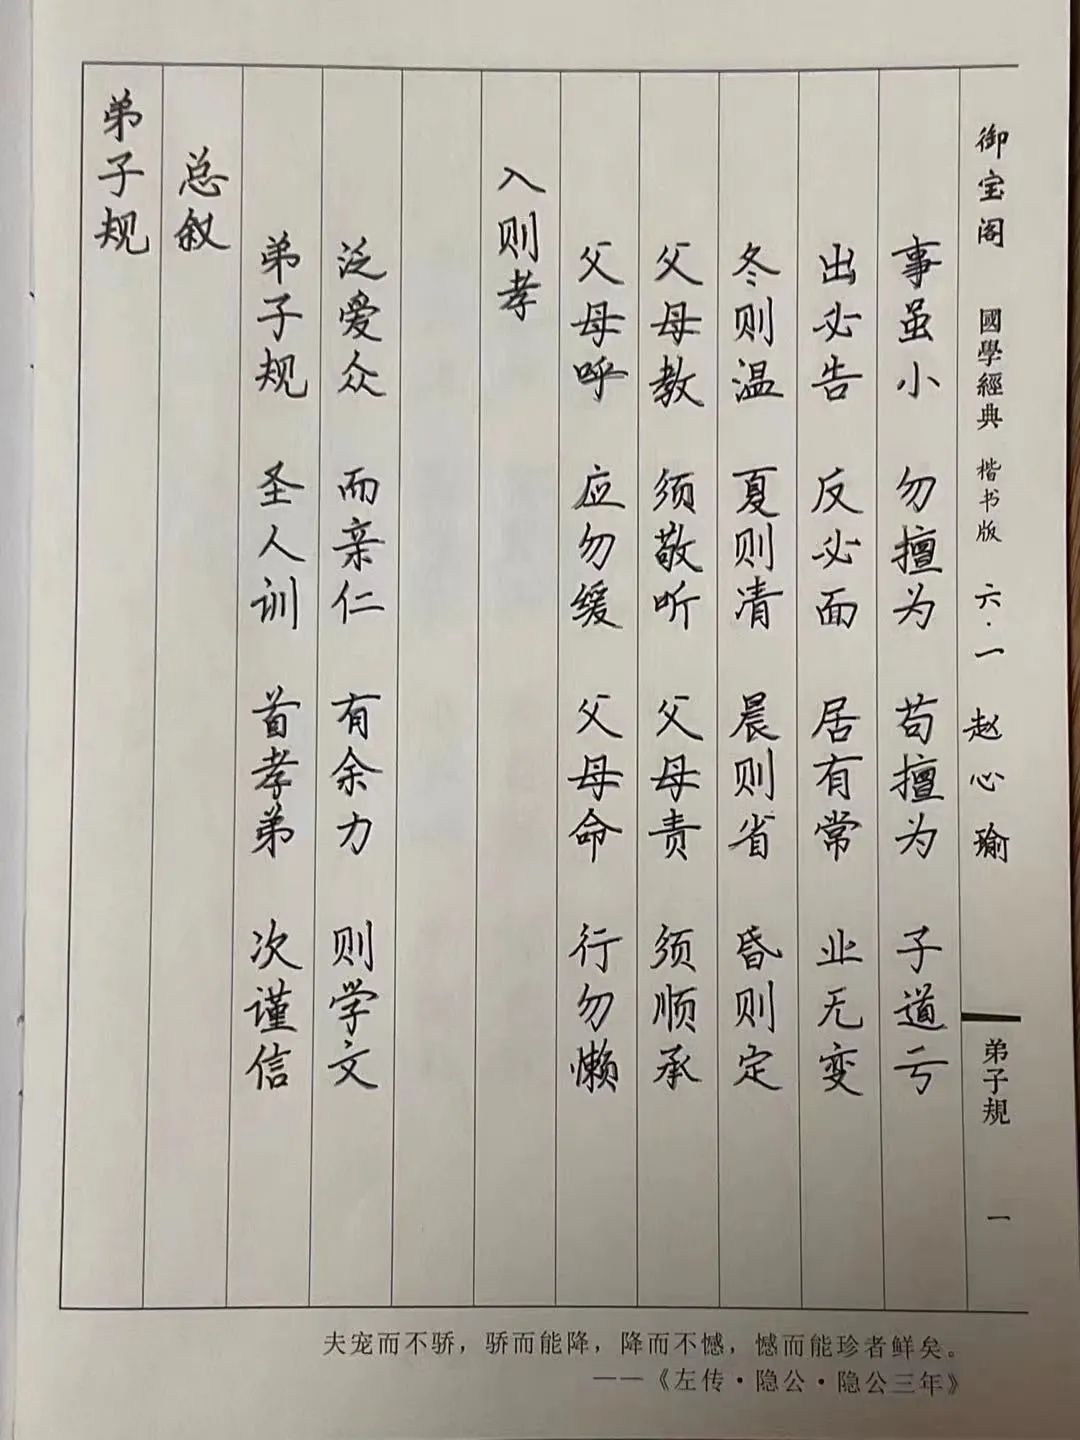 弟子规
总叙
弟子规 圣人训 首孝弟 次谨信
泛爱众 而亲仁 有余力 则学文
入则孝
父母呼 应勿缓 父母命 行勿懒
父母教 须敬听 父母责 须顺承
冬则温 夏则凊 晨则省 昏则定
出必告 反必面 居有常 业无变
事虽小 勿擅为 苟擅为 子道亏
御宝阁 國學經典 楷书版 六·一 赵心瑜
弟子規 一
夫宠而不骄，骄而能降，降而不憾，憾而能珍者鲜矣。
——《左传·隐公·隐公三年》